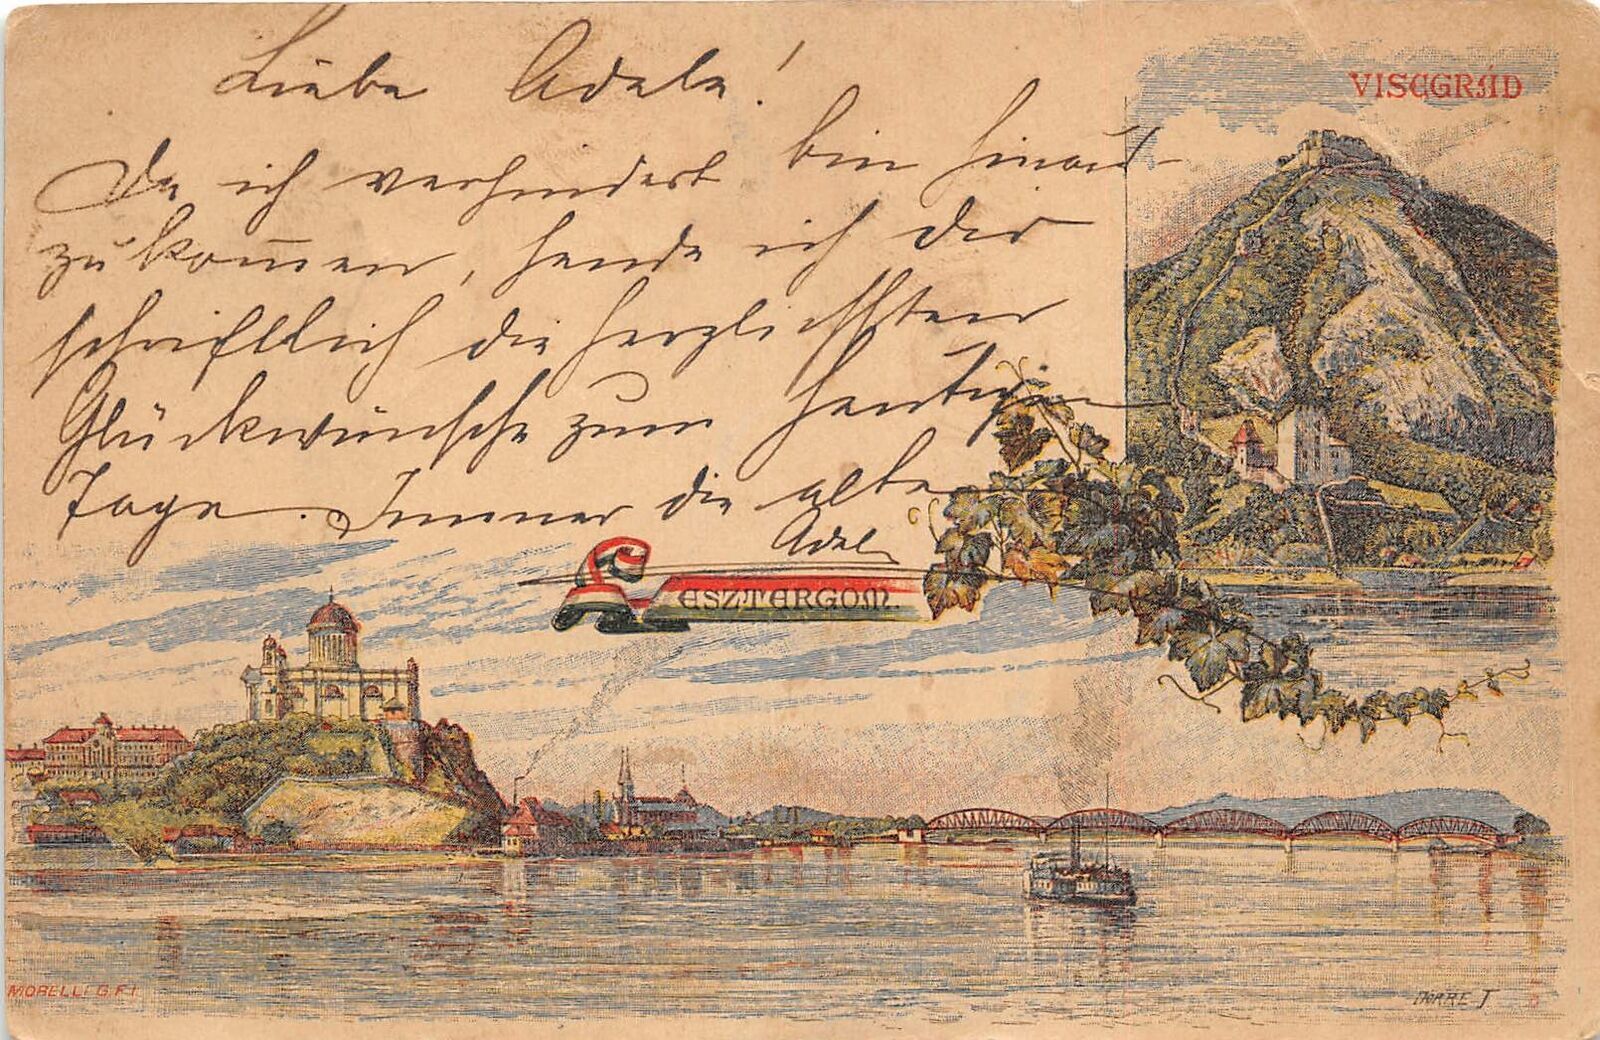 Liebe Adele!
Da ich verhindert bin hinaus
zukommen, sende ich dir
schriftlich die herzlichsten
Glückwünsche zum heutigen
Tage. Immer die alte
Adele
VISEGRÁD
ESZTERGOM.
MORELLI G.F.I.
DÖRRE T